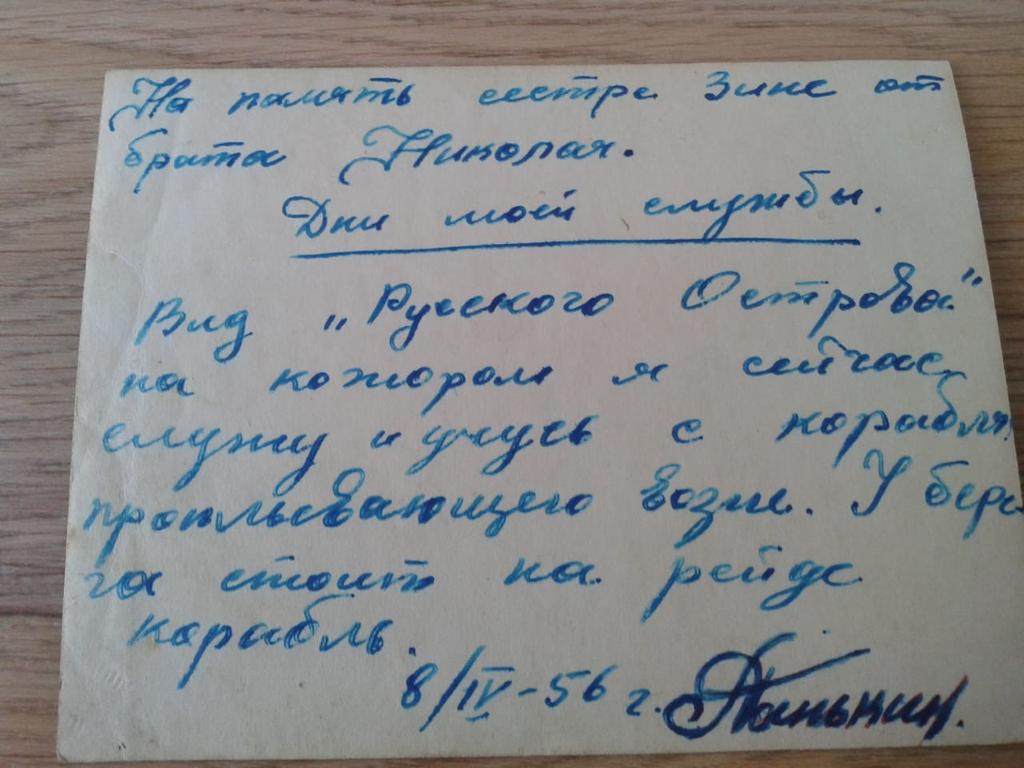 На память сестре Зине от
брата Николая.
Дни моей службы.
Вид „Русского Острова"
на котором я сейчас
служу и учусь с корабля
проплывающего возле. У бере
га стоит на рейде
корабль.
8/IV-56 г. Панькин.